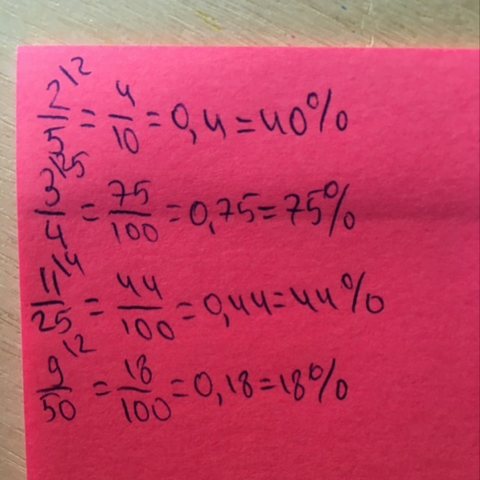 2\2/5 = 4/10 = 0,4 = 40%
3\25/4 = 75/100 = 0,75 = 75%
11\4/25 = 44/100 = 0,44 = 44%
9\2/50 = 18/100 = 0,18 = 18%